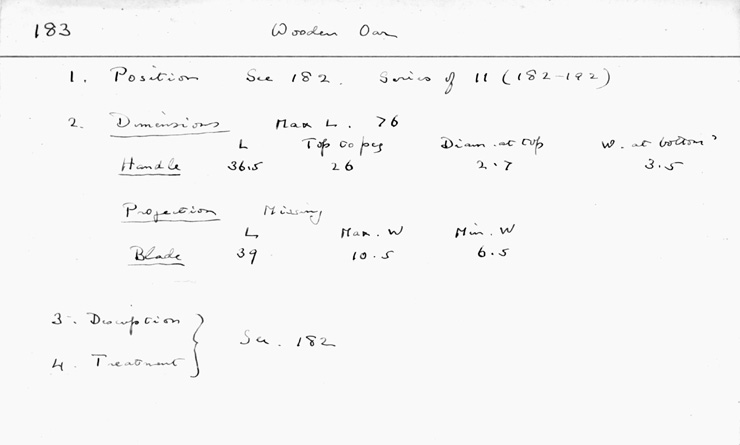 183 Wooden Oar
1. Position See 182. Series of 11 (182-192)
2. Dimensions Max L. 76
L Top to peg Diam. at top W. at bottom?
Handle 36.5 26 2.7 3.5
Projection Missing
L Max. W Min. W
Blade 39 10.5 6.5
3. Description
See. 182
4. Treatment